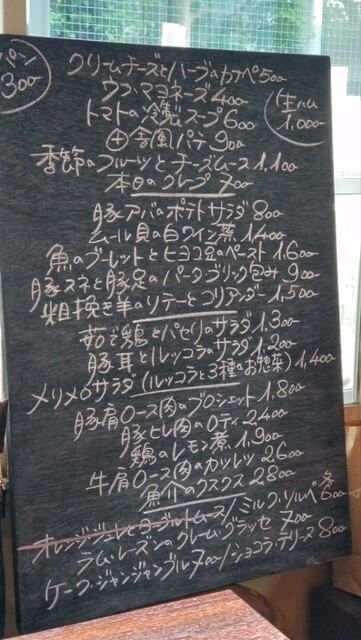 パン
300-
生ハム
1,000-
クリームチーズとハーブのカナペ 500-
ウフ・マヨネーズ 400-
トマトの冷製スープ 600-
田舎風パテ 900-
季節のフルーツとチーズムース 1,100-
本日のクレープ 700-
豚アバのポテトサラダ 800-
ムール貝の白ワイン蒸 1,400-
魚のブーレットとヒヨコ豆のペースト 1,600-
豚スネと豚足のパータブリック包み 900-
粗挽き羊のリテーとコリアンダー 1,500-
茹で鶏とパセリのサラダ 1,300-
豚耳とルッコラのサラダ 1,200-
メリメロサラダ (ルッコラと3種のお惣菜) 1,400-
豚肩ロース肉のブロシェット 1,800-
豚ヒレ肉のロティ 2400-
鶏のレモン煮 1,900-
牛肩ロース肉のカツレツ 2600-
魚介のクスクス 2800-
オレンジジュレとヨーグルトムース / ミルク・ソルベ 各600-
ラム・レーズンのクレーム・グラッセ 700-
ケーク・ジャンジャンブル 700- / ショコラ・デリース 800-